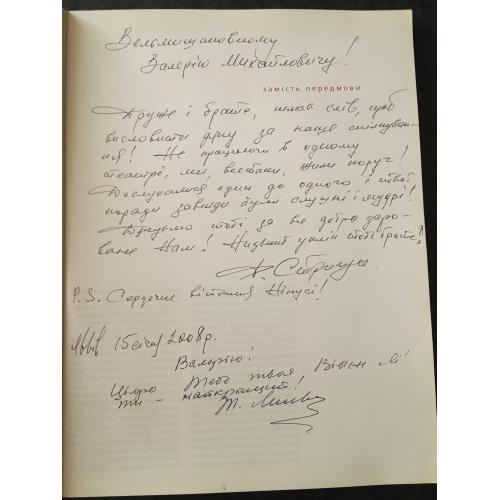 Вельмишановному
Валерію Михайловичу!
замість передмови
Друже і брате, немає слів, щоб
висловити дяку за наше спілкуван-
ня! Не працюючи в одному
театрі, ми, все-таки, жили поруч!
Дослухалися один до одного і твої
поради завжди були слушні і мудрі!
Дякуємо тобі за все добре даро-
ване Нам! Низький уклін тобі брате!
P.S. Сердечні вітання Нінусі!
Львів 15 січня 2008 р.
Валерію!
Цілую Тебе твоя
ти – найкращий!